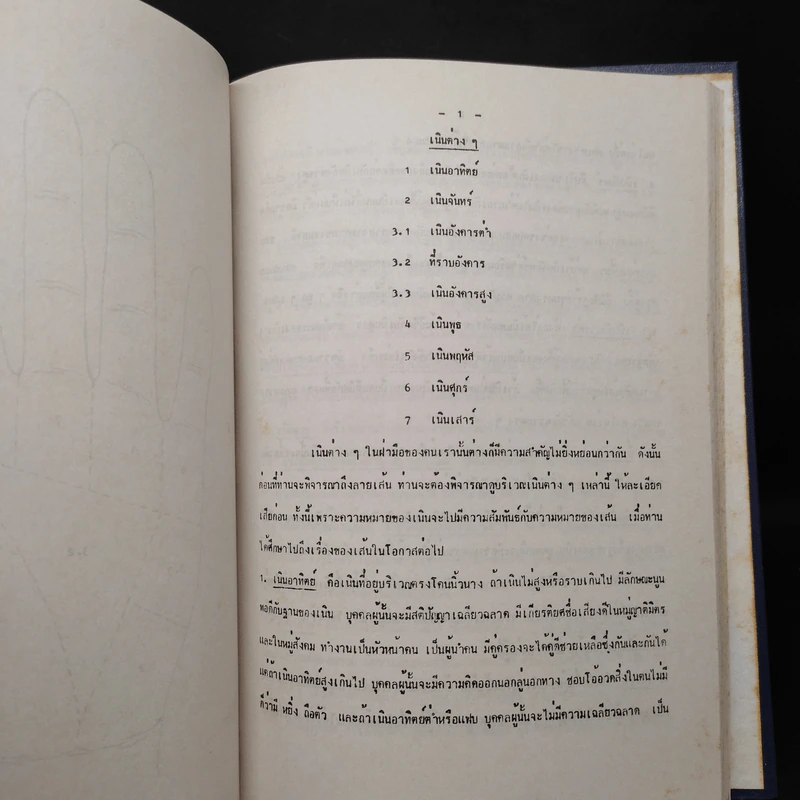 - 1 -
เนินต่าง ๆ
1 เนินอาทิตย์
2 เนินจันทร์
3.1 เนินอังคารต่ำ
3.2 ที่ราบอังคาร
3.3 เนินอังคารสูง
4 เนินพุธ
5 เนินพฤหัส
6 เนินศุกร์
7 เนินเสาร์
เนินต่าง ๆ ในฝ่ามือของคนเรานั้นต่างก็มีความสำคัญไม่ยิ่งหย่อนกว่ากัน ดังนั้น
ก่อนที่ท่านจะพิจารณาถึงลายเส้น ท่านจะต้องพิจารณาดูบริเวณเนินต่าง ๆ เหล่านี้ ให้ละเอียด
เสียก่อน ทั้งนี้เพราะความหมายของเนินจะไปมีความสัมพันธ์กับความหมายของเส้น เมื่อท่าน
ได้ศึกษาไปถึงเรื่องของเส้นในโอกาสต่อไป
1. เนินอาทิตย์ คือเนินที่อยู่บริเวณตรงโคนนิ้วนาง ถ้าเนินไม่สูงหรือราบเกินไป มีลักษณะนูน
พอดีกับฐานของเนิน บุคคลผู้นั้นจะมีสติปัญญาเฉลียวฉลาด มีเกียรติยศชื่อเสียงดีในหมู่ญาติมิตร
และในหมู่สังคม ทำงานเป็นหัวหน้าคน เป็นผู้นำคน มีคู่ครองจะได้คู่ดีช่วยเหลือซึ่งกันและกันได้
แต่ถ้าเนินอาทิตย์สูงเกินไป บุคคลผู้นั้นจะมีความคิดออกนอกลู่นอกทาง ชอบโอ้อวดสิ่งในตนไม่มี
ก็ว่ามี หยิ่ง ถือตัว และถ้าเนินอาทิตย์ต่ำหรือแฟบ บุคคลผู้นั้นจะไม่มีความเฉลียวฉลาด เป็น